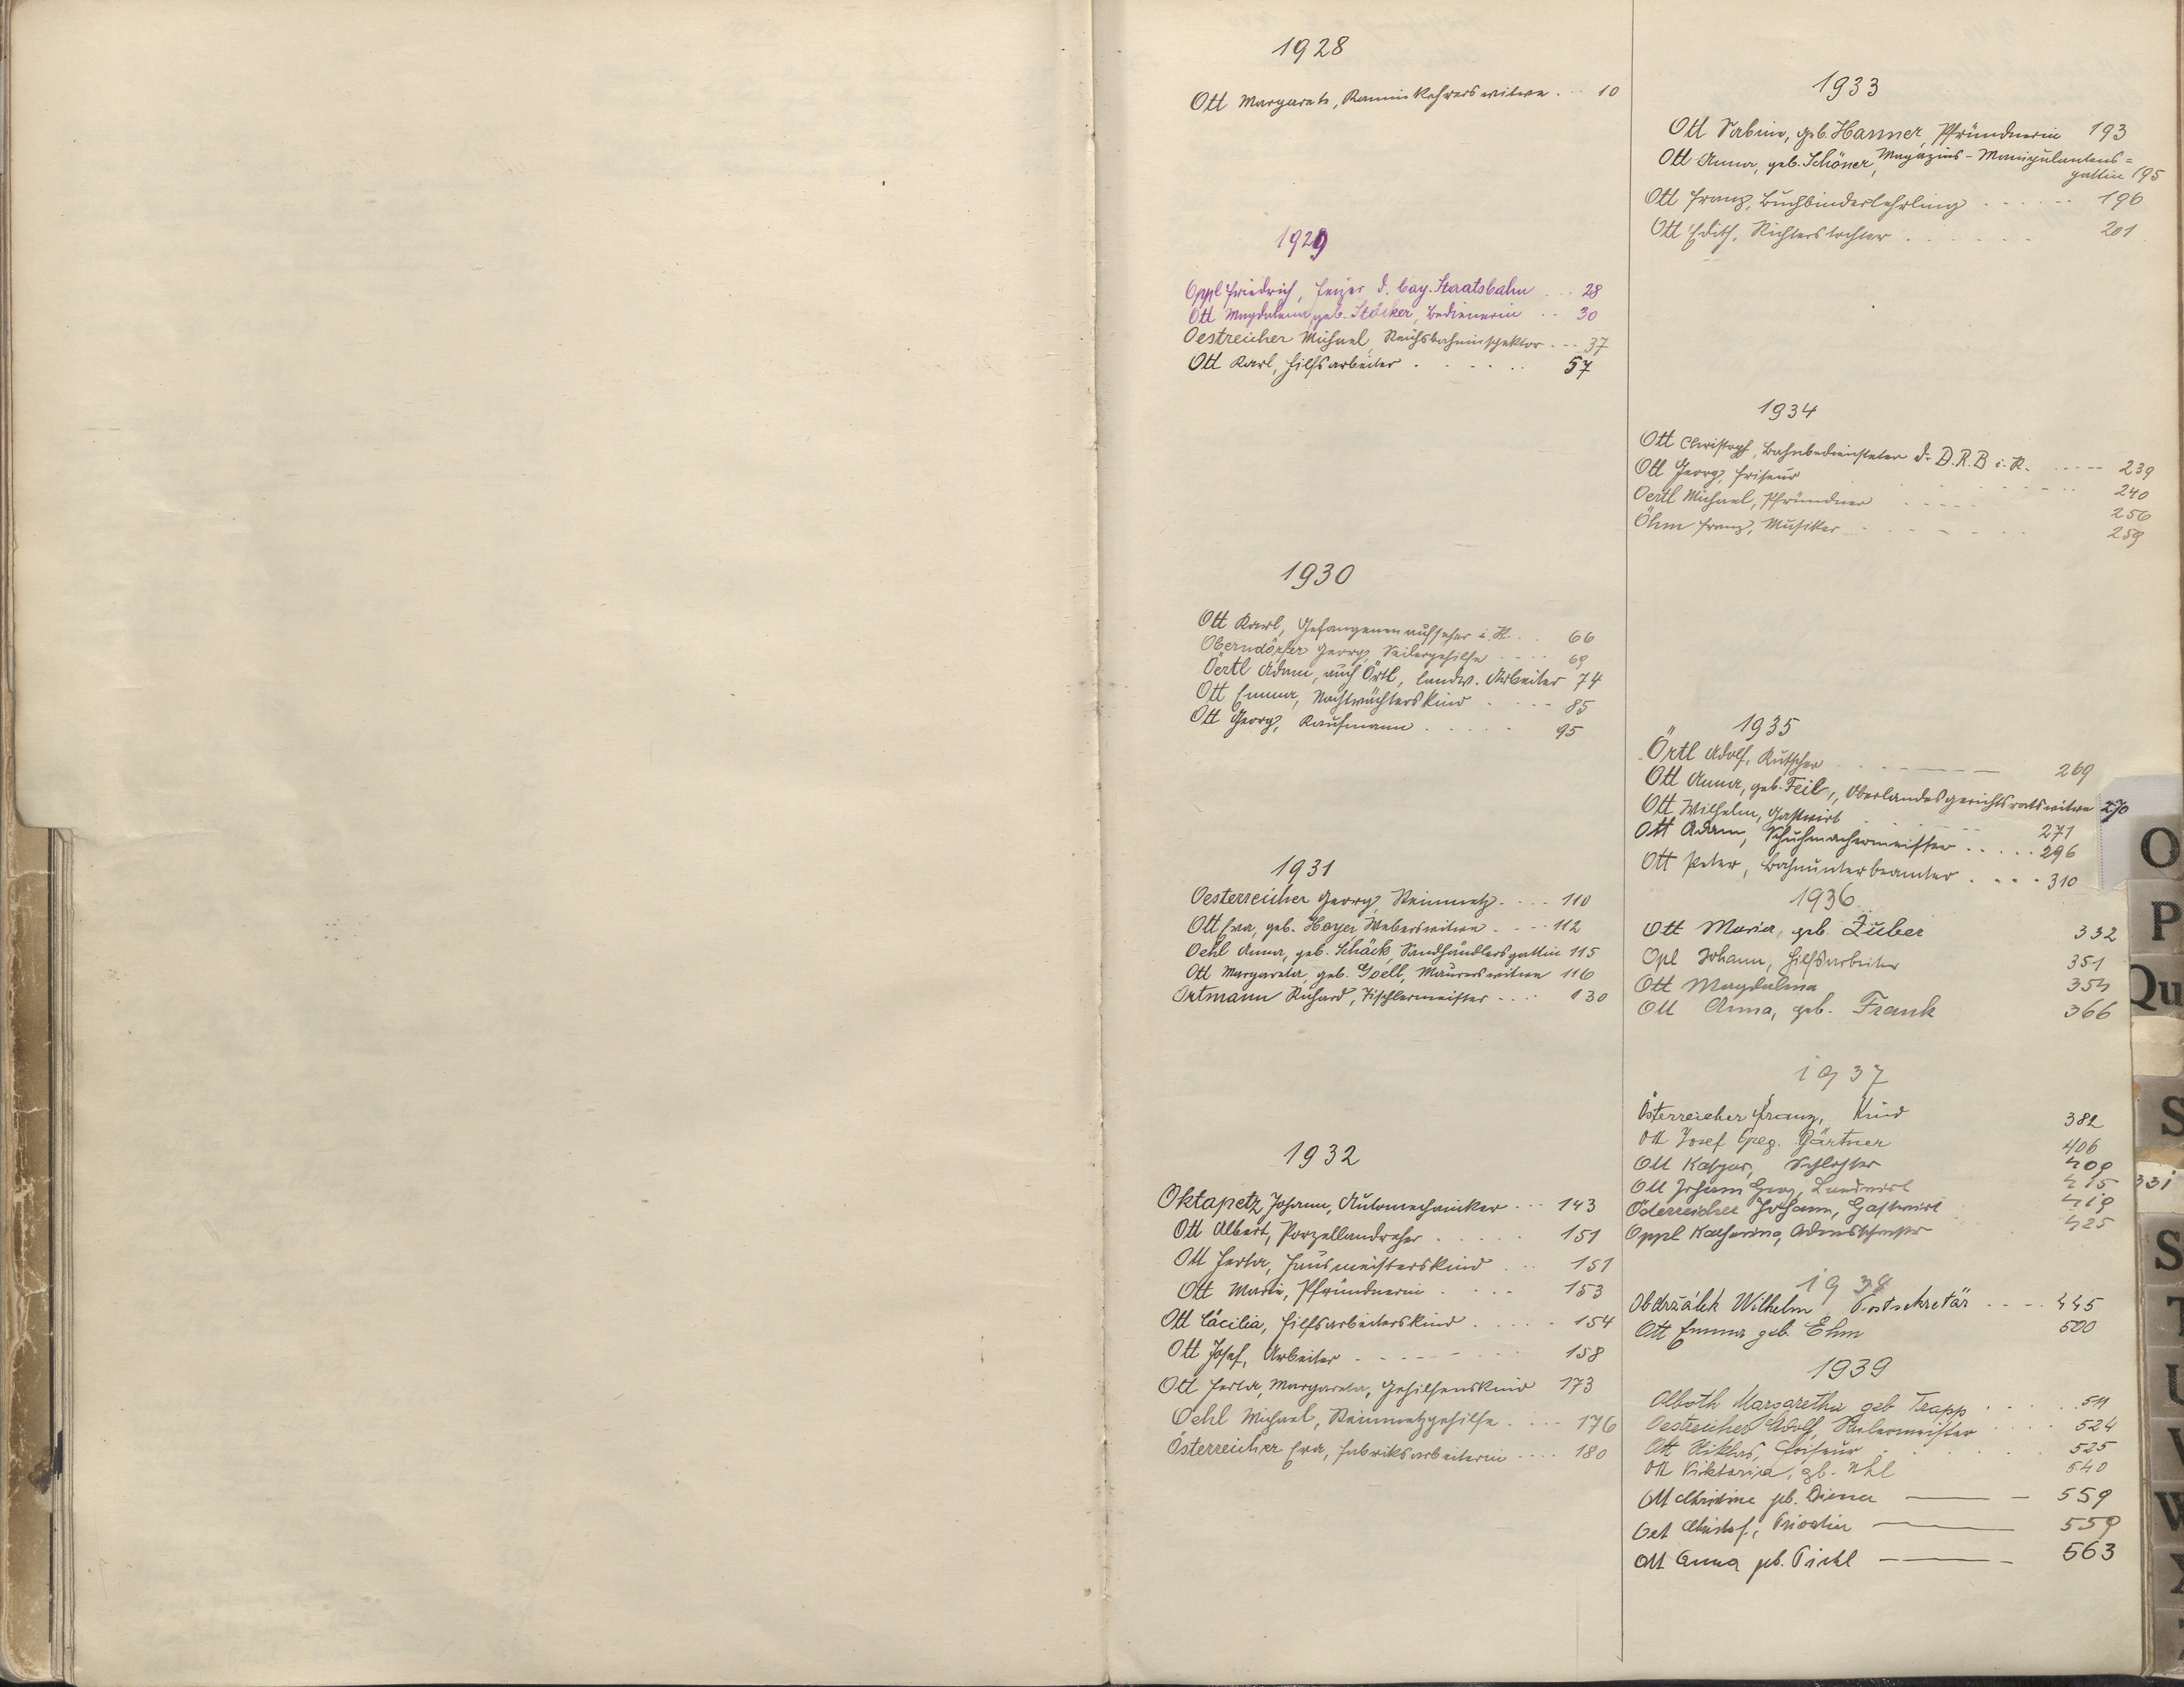 1928
Ott Margareta, Kaminkehrerswitwe . . . 10
1929
Oppl Friedrich, Heizer d. bay. Staatsbahn . . . 28
Ott Magdalena geb. Stöcker, Bedienerin . . 30
Oestreicher Michael, Reichsbahninspektor . . . 37
Ott Karl, Hilfsarbeiter . . . . . . 57
1930
Ott Karl, Gefangenenaufseher i. R. . . 66
Oberndörfer Georg, Seilergehilfe . . . . 69
Oertl Adam, auch Örtl, landw. Arbeiter 74
Ott Emma, Nachtwächterskind . . . . 85
Ott Georg, Kaufmann . . . . . 95
1931
Oesterreicher Georg, Steinmetz . . . . 110
Ott Eva, geb. Hoyer, Weberswitwe . . . . 112
Oehl Anna, geb. Schäck, Sandhändlersgattin 115
Ott Margareta, geb. Goell, Maurerswitwe 116
Ortmann Richard, Tischlermeister . . . . 130
1932
Oktapetz Johann, Automechaniker . . . 143
Ott Albert, Porzellandreher . . . . . 151
Ott Herta, Hausmeisterskind . . . 151
Ott Marie, Pfründnerin . . . . 153
Ott Cäcilia, Hilfsarbeiterskind . . . . . 154
Ott Josef, Arbeiter . . . . . . . 158
Ott Herta, Margareta, Gehilfenskind 173
Oehl Michael, Steinmetzgehilfe . . . . 176
Österreicher Eva, Fabriksarbeiterin . . . . 180
1933
Ott Sabina, geb. Hanner, Pfründnerin 193
Ott Anna, geb. Schöner, Magazins-Manipulantens=
gattin 195
Ott Franz, Buchbinderlehrling . . . . . . 196
Ott Edith, Richterstochter . . . . . . 201
1934
Ott Christoph, Bahnbediensteter d. D.R.B i. R. . . . . . 239
Ott Georg, Friseur . . . . . . 240
Oertl Michael, Pfründner . . . . . . 256
Öhm Franz, Musiker . . . . . . 259
1935
Örtl Adolf, Kutscher 269
Ott Anna, geb. Feil, Oberlandesgerichtsratswitwe 270
Ott Wilhelm, Gastwirt 271
Ott Adam, Schuhmachermeister . . . . . 296
Ott Peter, Bahnunterbeamter . . . . 310
1936
Ott Maria, geb. Zuber 332
Opl Johann, Hilfsarbeiter 351
Ott Magdalena 354
Ott Anna, geb. Frank 366
1937
Österreicher Franz, Kind 382
Ott Josef Greg. Gärtner 406
Ott Kaspar, Schlosser 409
Ott Johann Georg, Landwirt 415
Österreicher Johann, Gastwirt 419
Oppl Katharina, 425
1938
Obdržálek Wilhelm Postsekretär . . . . 445
Ott Emma geb. Ehm 500
1939
Olboth Margaretha geb Trapp . . . . 511
Oestreicher Adolf, Seilermeister . . . . 524
Ott Niklas, Friseur . . . . . 525
Ott Viktoria, gb. Uhl 540
Ott Christine geb. Diener — 559
Ott Christof, Privatier — 559
Ott Anna geb. Pickl — 563
O
P
Qu
S
U
V
W